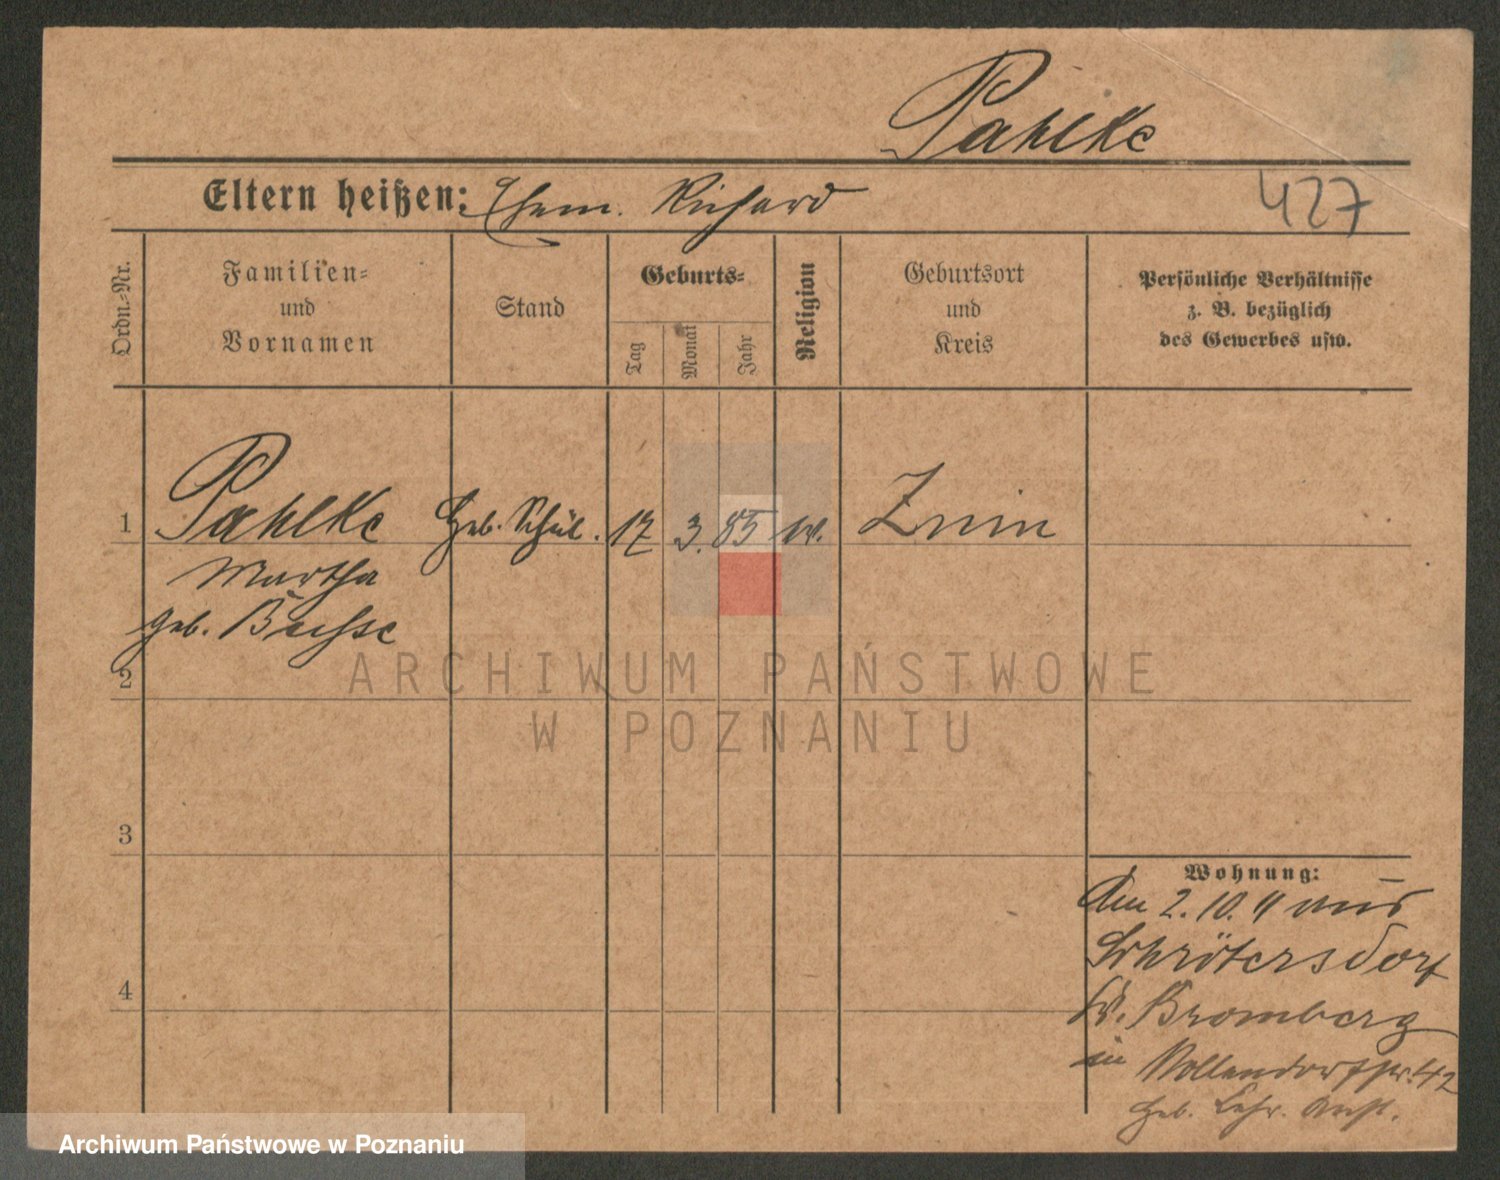 Pahlke
Eltern heißen: Ehem. Richard
427
Ordn.-Nr.
Familien-
und
Vornamen
Stand
Geburts-
Tag
Monat
Jahr
Religion
Geburtsort
und
Kreis
Persönliche Verhältnisse
z. B. bezüglich
des Gewerbes usw.
1
Pahlke
Martha
geb.
Heb. Schül.
17
3.
85
ev.
Znin
2
3
4
Wohnung:
Am 2.10.11 aus
Schrötersdorf
Kr. Bromberg
in Nollendorfstr. 42
Heb. Lehr. Anst.
ARCHIWUM PAŃSTWOWE
W POZNANIU
Archiwum Państwowe w Poznaniu